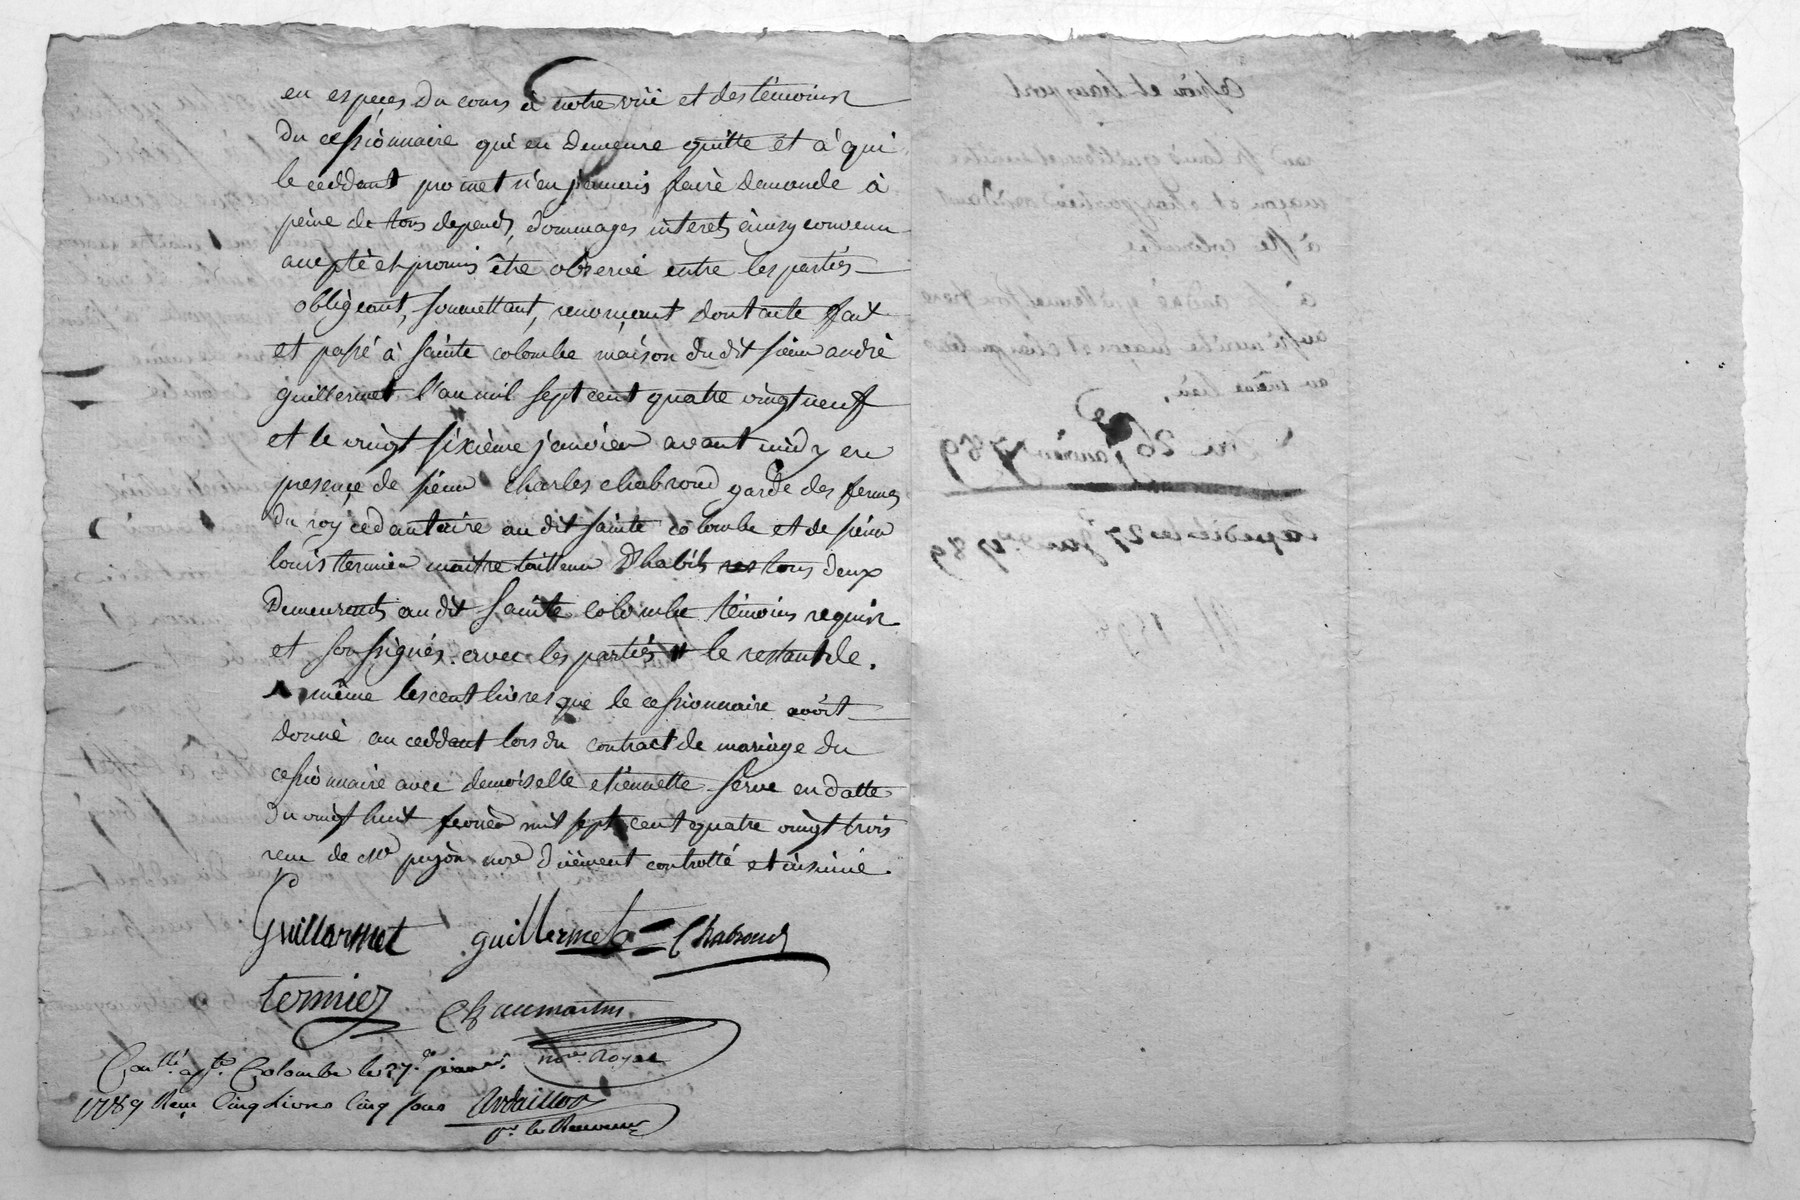 en especes du cours à notre vüe et des temoins
du cessionnaire qui en demeure quitte et à qui
le ceddant promet n'en jamais faire demande à
peine de tous depends, dommages interets ainsy convenu
accepté et promis être observé entre les parties
obligeant, soumettant, renonçant dont acte fait
et passé à sainte colombe maison du dit sieur andré
guillermet l'an mil sept cent quatre vingt neuf
et le vingt sixième janvier avant midy en
presence de sieur charles chabroud garde des fermes
du roy au dit sainte colombe et de sieur
louis termier maitre tailleur d'habits tous deux
demeurants au dit sainte colombe témoins requis
et soussignés avec les parties le restant de
même les cent livres que le cessionnaire avoit
donné au ceddant lors du contract de mariage du
cessionnaire avec demoiselle etiennette serve en datte
du vingt huit fevrier mil sept cent quatre vingt trois
recu de Me nore düement controllé et insinué.
Guillarmet guillermet Chabroud
termier Chaumartin
nore. Royal
Conllé. à Ste. Colombe le 27e. janver.
1789 Recu Cinq Livres Cinq sous
pr. le Receveur
Cession et transport
par sr louis guillermet maitre
maçon et charpentier résidant
à ste colombe
à sr andré guillermet son frere
aussi maitre maçon et charpentier
au même lieu.
Du 26 janvier 1789
Expedié le 27 janver. 1789